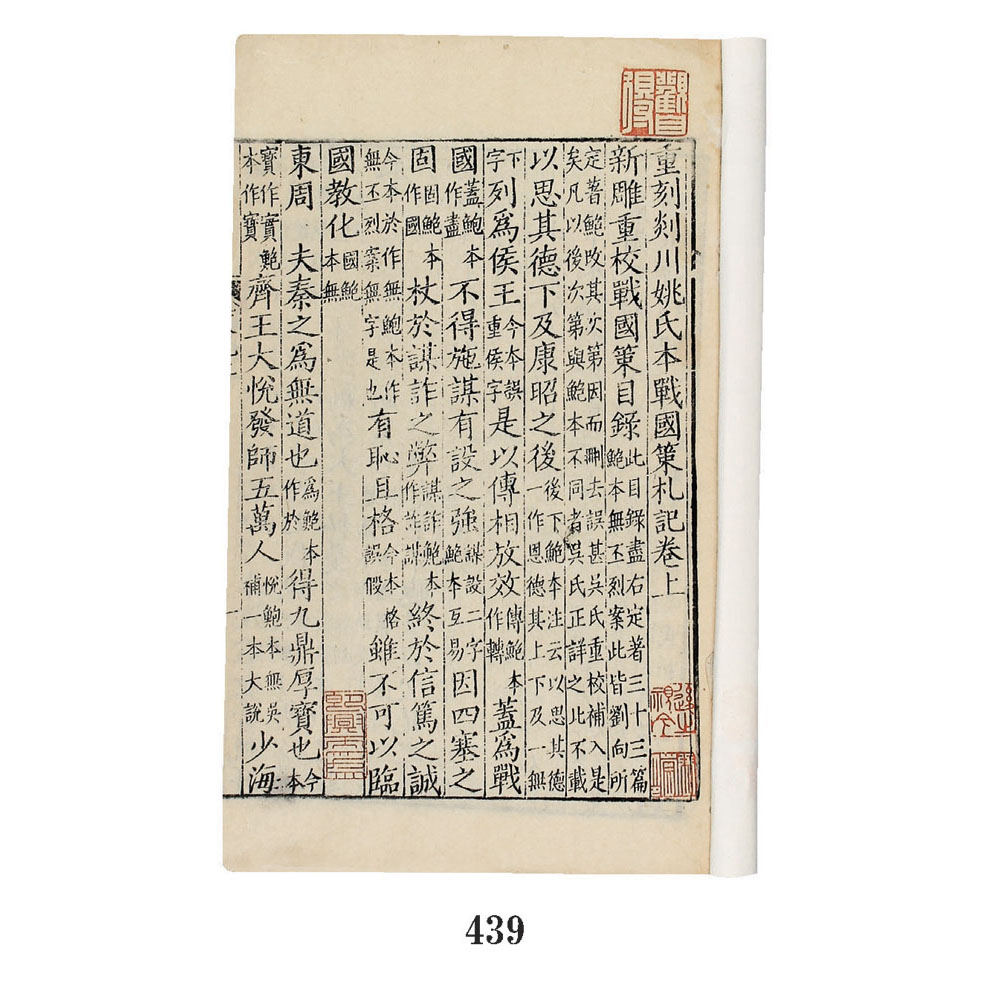 重刻剡川姚氏本戰國策札記卷上
新雕重校戰國策目錄此目錄盡右定著三十三篇鮑本無丕烈案此皆劉向所
定著鮑改其次第因而刪去誤甚吳氏重校補入是矣凡以後次第與鮑本不同者吳氏正詳之此不載
以思其德下及康昭之後後下鮑本注云以思其德一作恩德其上下及一無
下字列爲侯王今本誤重侯字是以傳相放效傳鮑本作轉蓋爲戰
國蓋鮑本作盡不得施謀有設之強謀設二字鮑本互易因四塞之
固固鮑本作國杖於謀詐之弊謀詐鮑本作詐謀終於信篤之誠
今本於作無鮑本作無丕烈案無字是也有恥且格今本格誤假雖不可以臨
國教化國鮑本無
東周 夫秦之爲無道也爲鮑本作於得九鼎厚寶也今本
寶作實鮑本作寶齊王大悅發師五萬人悅鮑本無吳補一本大說少海
439